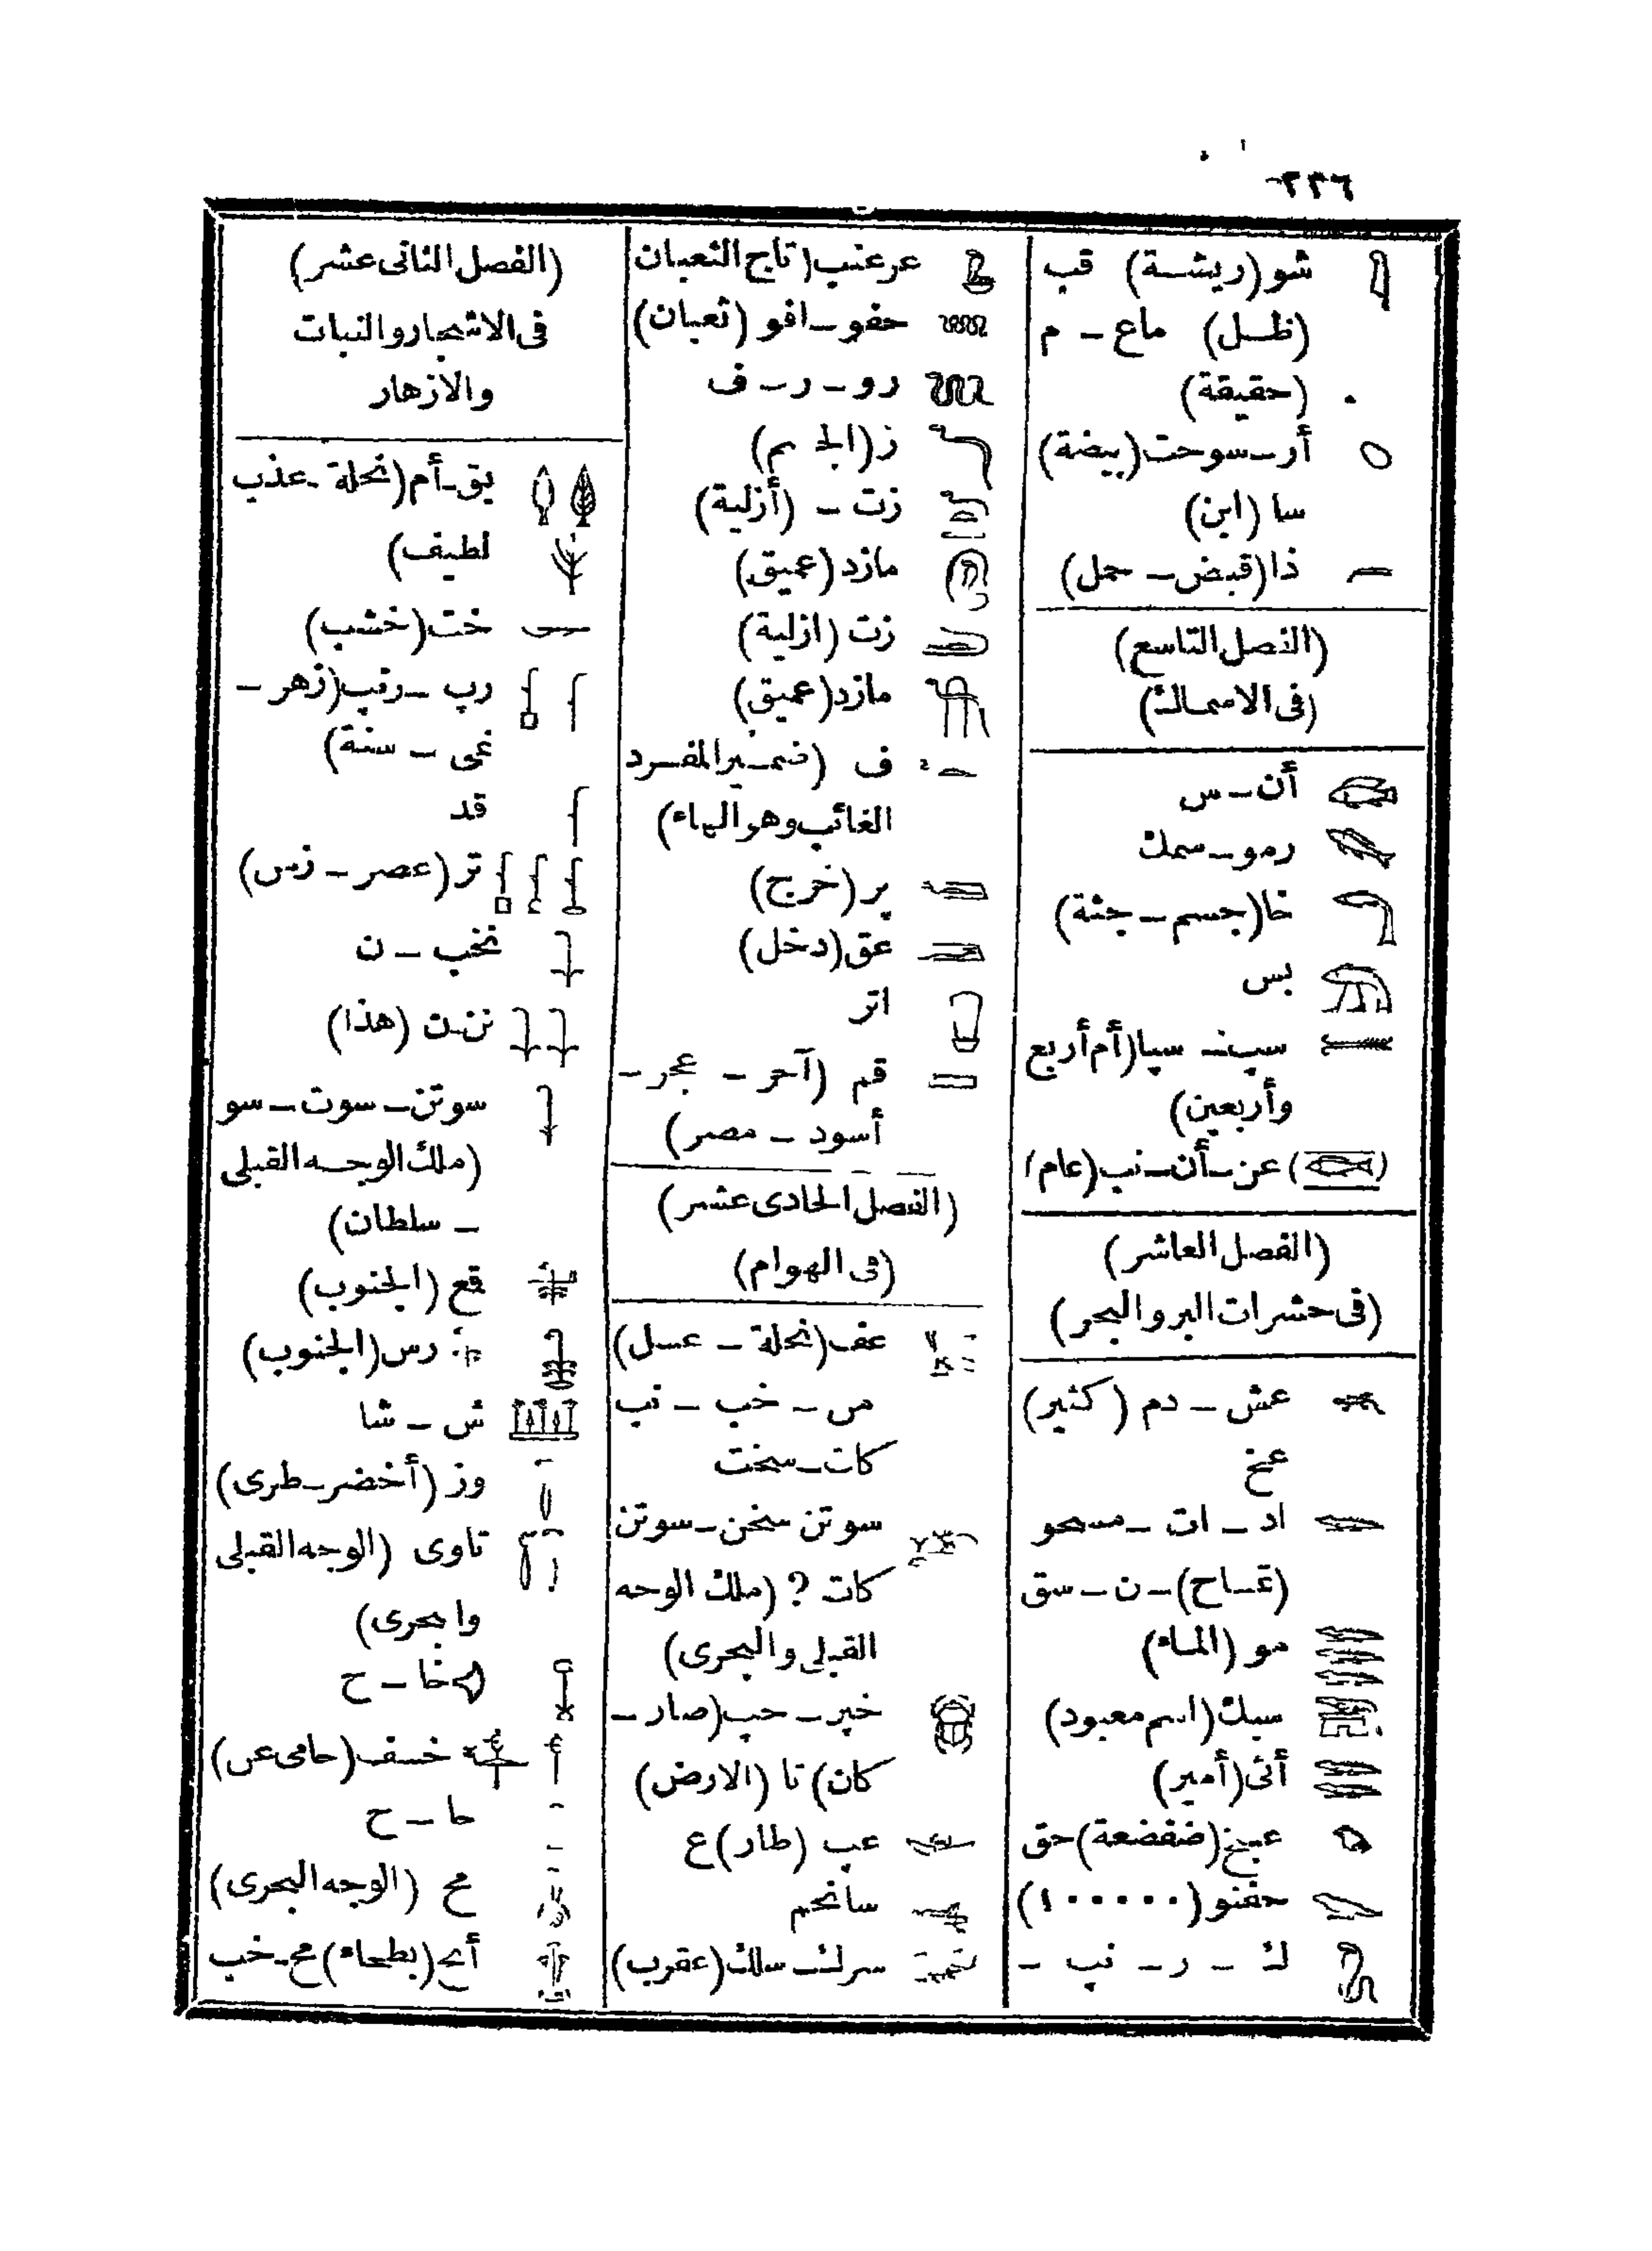 ٢٢٦
شو (ريشة) قب
(ظل) ماع - م
(حقيقة)
أر - سوحت (بيضة)
سا (ابن)
ذا (قبض - حمل)
(الفصل التاسع)
(فى الاسماك)
أن - س
رمو - سمك
خا (جسم - جثة)
بس
سپ - سپا (أم أربع
وأربعين)
عن - أن - نب (عام)
(الفصل العاشر)
(فى حشرات البر والبحر)
عش - دم (كثير)
عنخ
اد - ات - مسحو
(تمساح) - ن - سق
مو (الماء)
سبك (اسم معبود)
أتى (أمير)
عبخ (ضفضعة) حق
حفنو (١٠٠٠٠٠)
ك - ر - نپ -
عرعنب (تاج الثعبان
حفو - افو (ثعبان)
رو - ر - ف
ز (الجسم)
زت - (أزلية)
مازد (عميق)
زت (ازلية)
مازد (عميق)
ف (ضمير المفرد
الغائب وهو الهاء)
پر (خرج)
عق (دخل)
اتر
قم (آخر - -
أسود - مصر)
(الفصل الحادى عشر)
(فى الهوام)
عف (نحلة - عسل)
س - خب - نب
كات - سخت
سوتن سخن - سوتن
كات ? (ملك الوجه
القبلى والبحرى)
خپر - حپ (صار -
كان) تا (الارض)
عپ (طار) ع
سانحم
سرك - سلك (عقرب)
(الفصل الثانى عشر)
فى الاشجار والنبات
والازهار
يق - أم (نخلة - عذب
لطيف)
خت (خشب)
رپ - رنپ (زهر -
نمى - سنة)
قد
تر (عصر - زمن)
نخب - ن
نن - ن (هذا)
سوتن - سوت - سو
(ملك الوجه القبلى
- سلطان)
قع (الجنوب)
رس (الجنوب)
ش - شا
وز (أخضر - طرى)
تاوى (الوجه القبلى
والبحرى)
خا - ح
خسف (حامى عن)
حا - ح
مح (الوجه البحرى)
أح (بطحاء) مح - خب